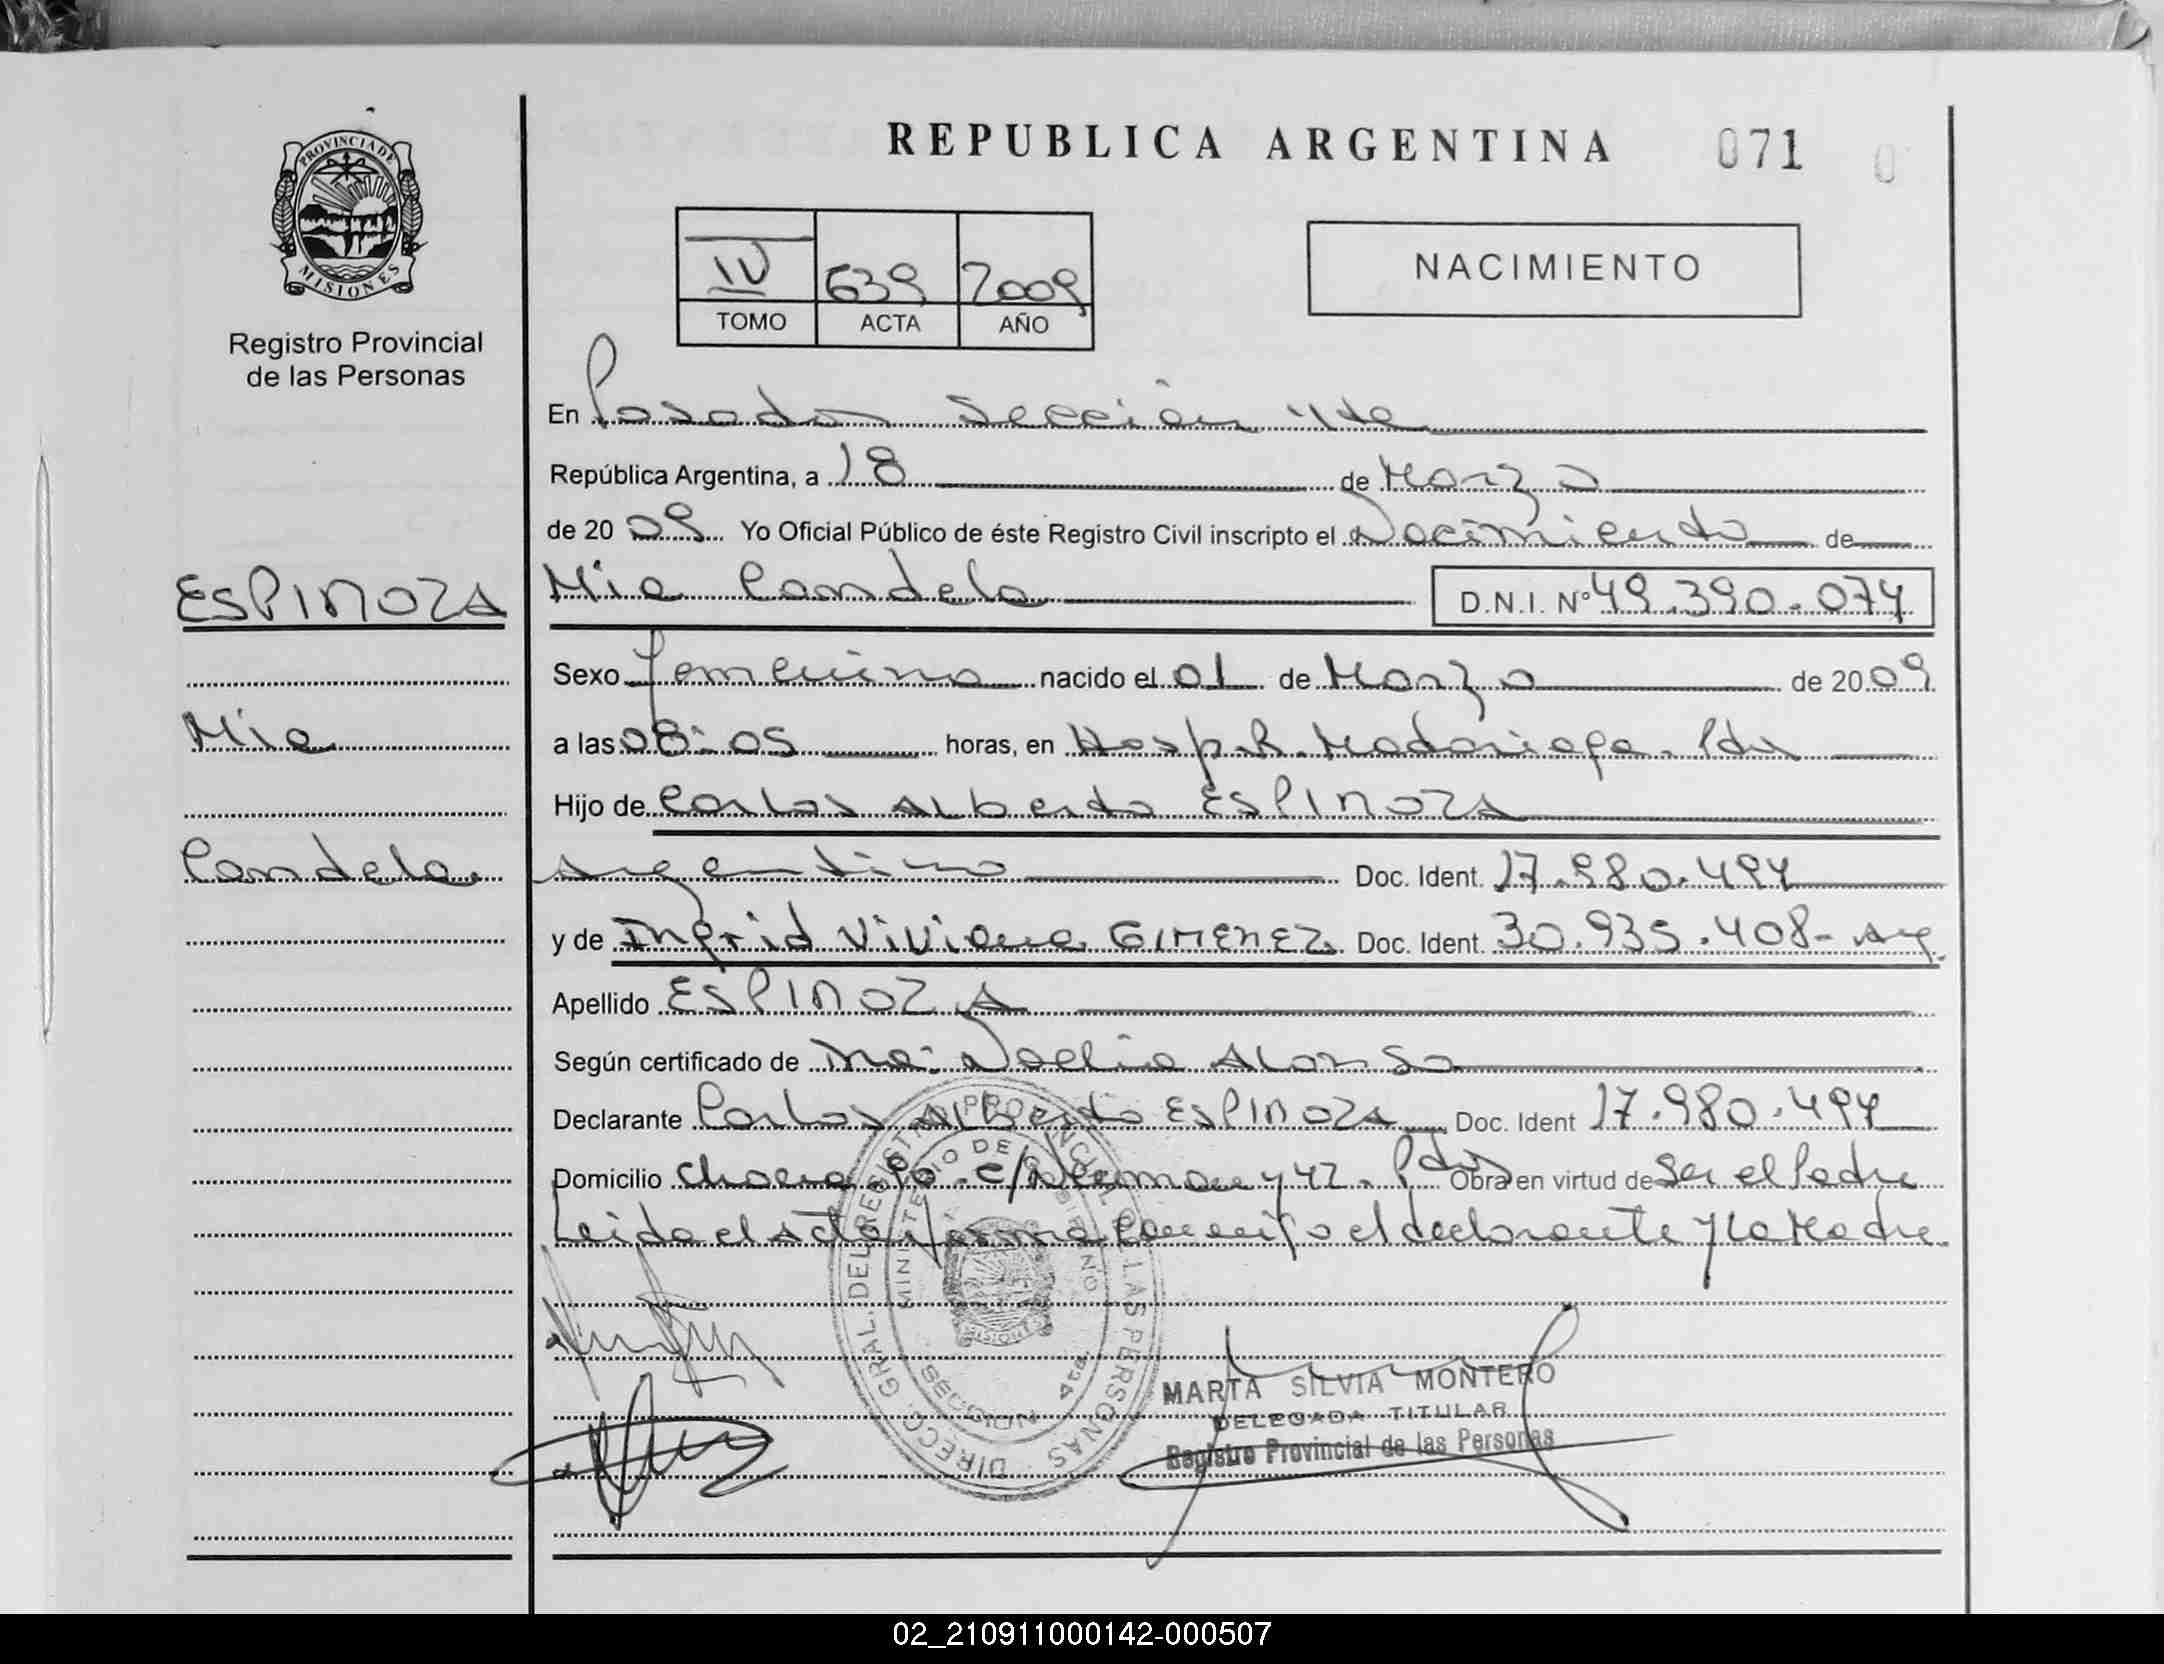 REPUBLICA ARGENTINA 071 0
PROVINCIA DE
MISIONES
Registro Provincial
de las Personas
IV 639 2009
TOMO ACTA AÑO
NACIMIENTO
En Posadas Sección 4ta
República Argentina, a 18 de Marzo
de 2009 Yo Oficial Público de éste Registro Civil inscripto el Nacimiento de
ESPINOZA
Mia Candela D.N.I. Nº 49.390.074
Sexo Femenino nacido el 01 de Marzo de 2009
Mia
a las 08:05 horas, en Hosp. R. Madariaga. Pdas
Hijo de Carlos Alberto ESPINOZA
Candela
Argentino Doc. Ident. 17.980.494
y de Ingrid Viviana GIMENEZ Doc. Ident. 30.935.408 - Arg.
Apellido ESPINOZA
Según certificado de Noelia Alonso
Declarante Carlos Alberto ESPINOZA Doc. Ident 17.980.494
Domicilio Chacra 90 - C/ y 42. Pdas Obra en virtud de Ser el Padre
Leida el Acta, firma conmigo el declarante y la Madre
DIRECC. GRAL. DEL REGISTRO PROVINCIAL DE LAS PERSONAS
MINISTERIO DE GOBIERNO
SECCION 4ta.
MISIONES
MARTA SILVIA MONTERO
DELEGADA TITULAR
Registro Provincial de las Personas
02_210911000142-000507